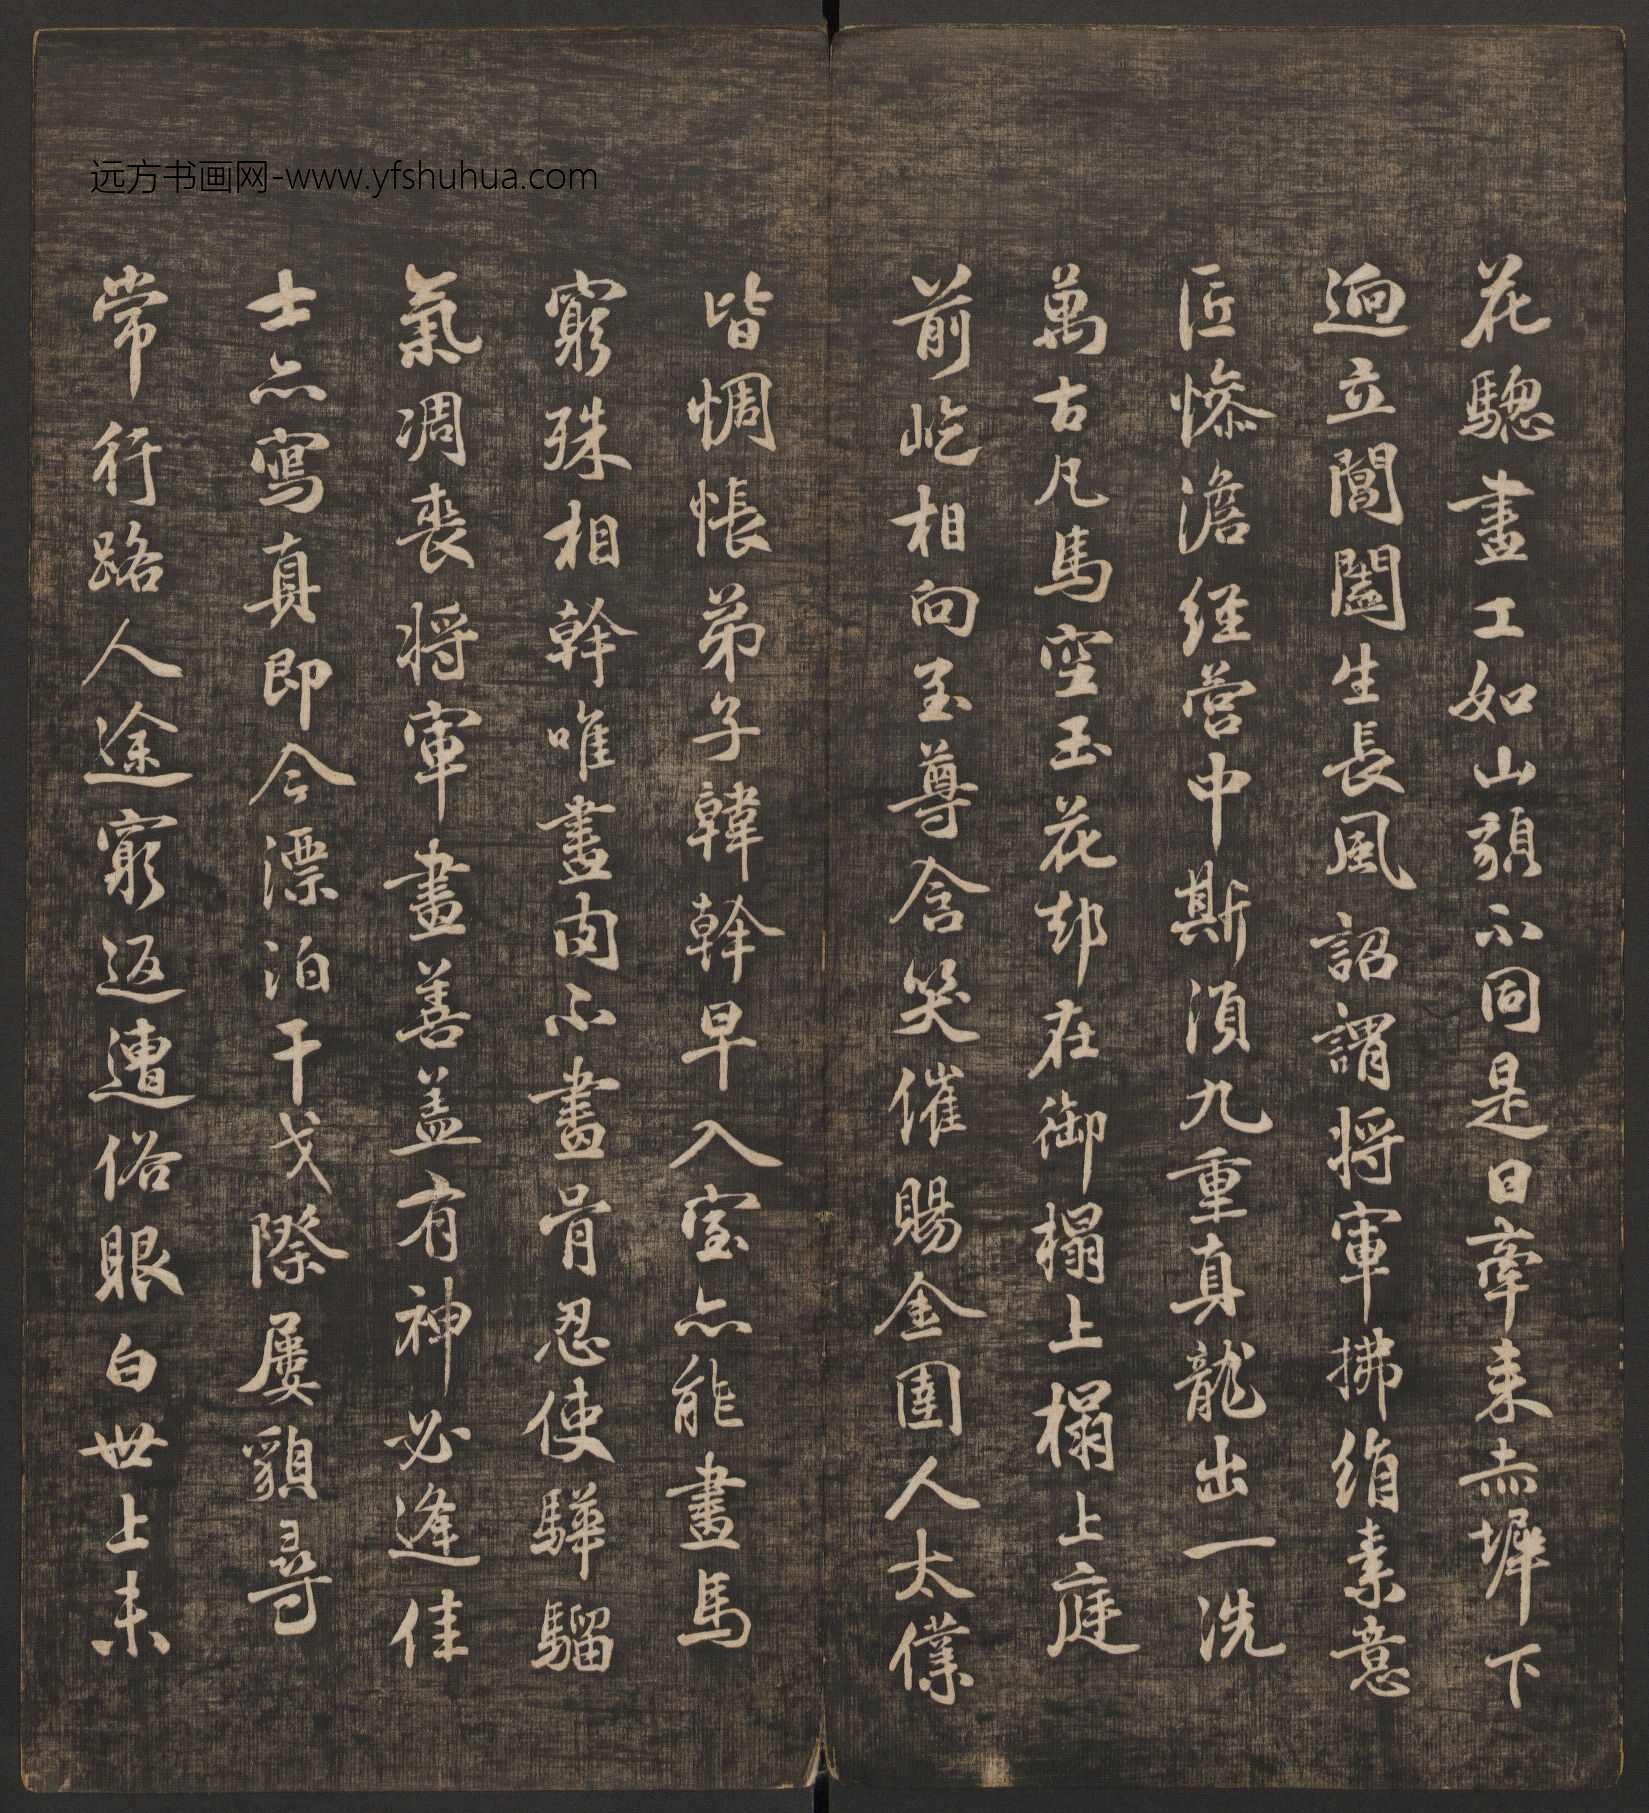 远方书画网-www.yfshuhua.com
花驄畫工如山貌不同是日牽来赤墀下
迥立閶闔生長風詔謂將軍拂絹素意
匠慘澹經營中斯須九重真龍出一洗
萬古凡馬空玉花却在御榻上榻上庭
前屹相向至尊含笑催賜金圉人太僕
皆惆悵弟子韓幹早入室亦能畫馬
窮殊相幹唯畫肉不畫骨忍使驊騮
氣凋喪將軍畫善盖有神必逢佳
士亦寫真即今漂泊干戈際屢貌尋
常行路人途窮返遭俗眼白世上未